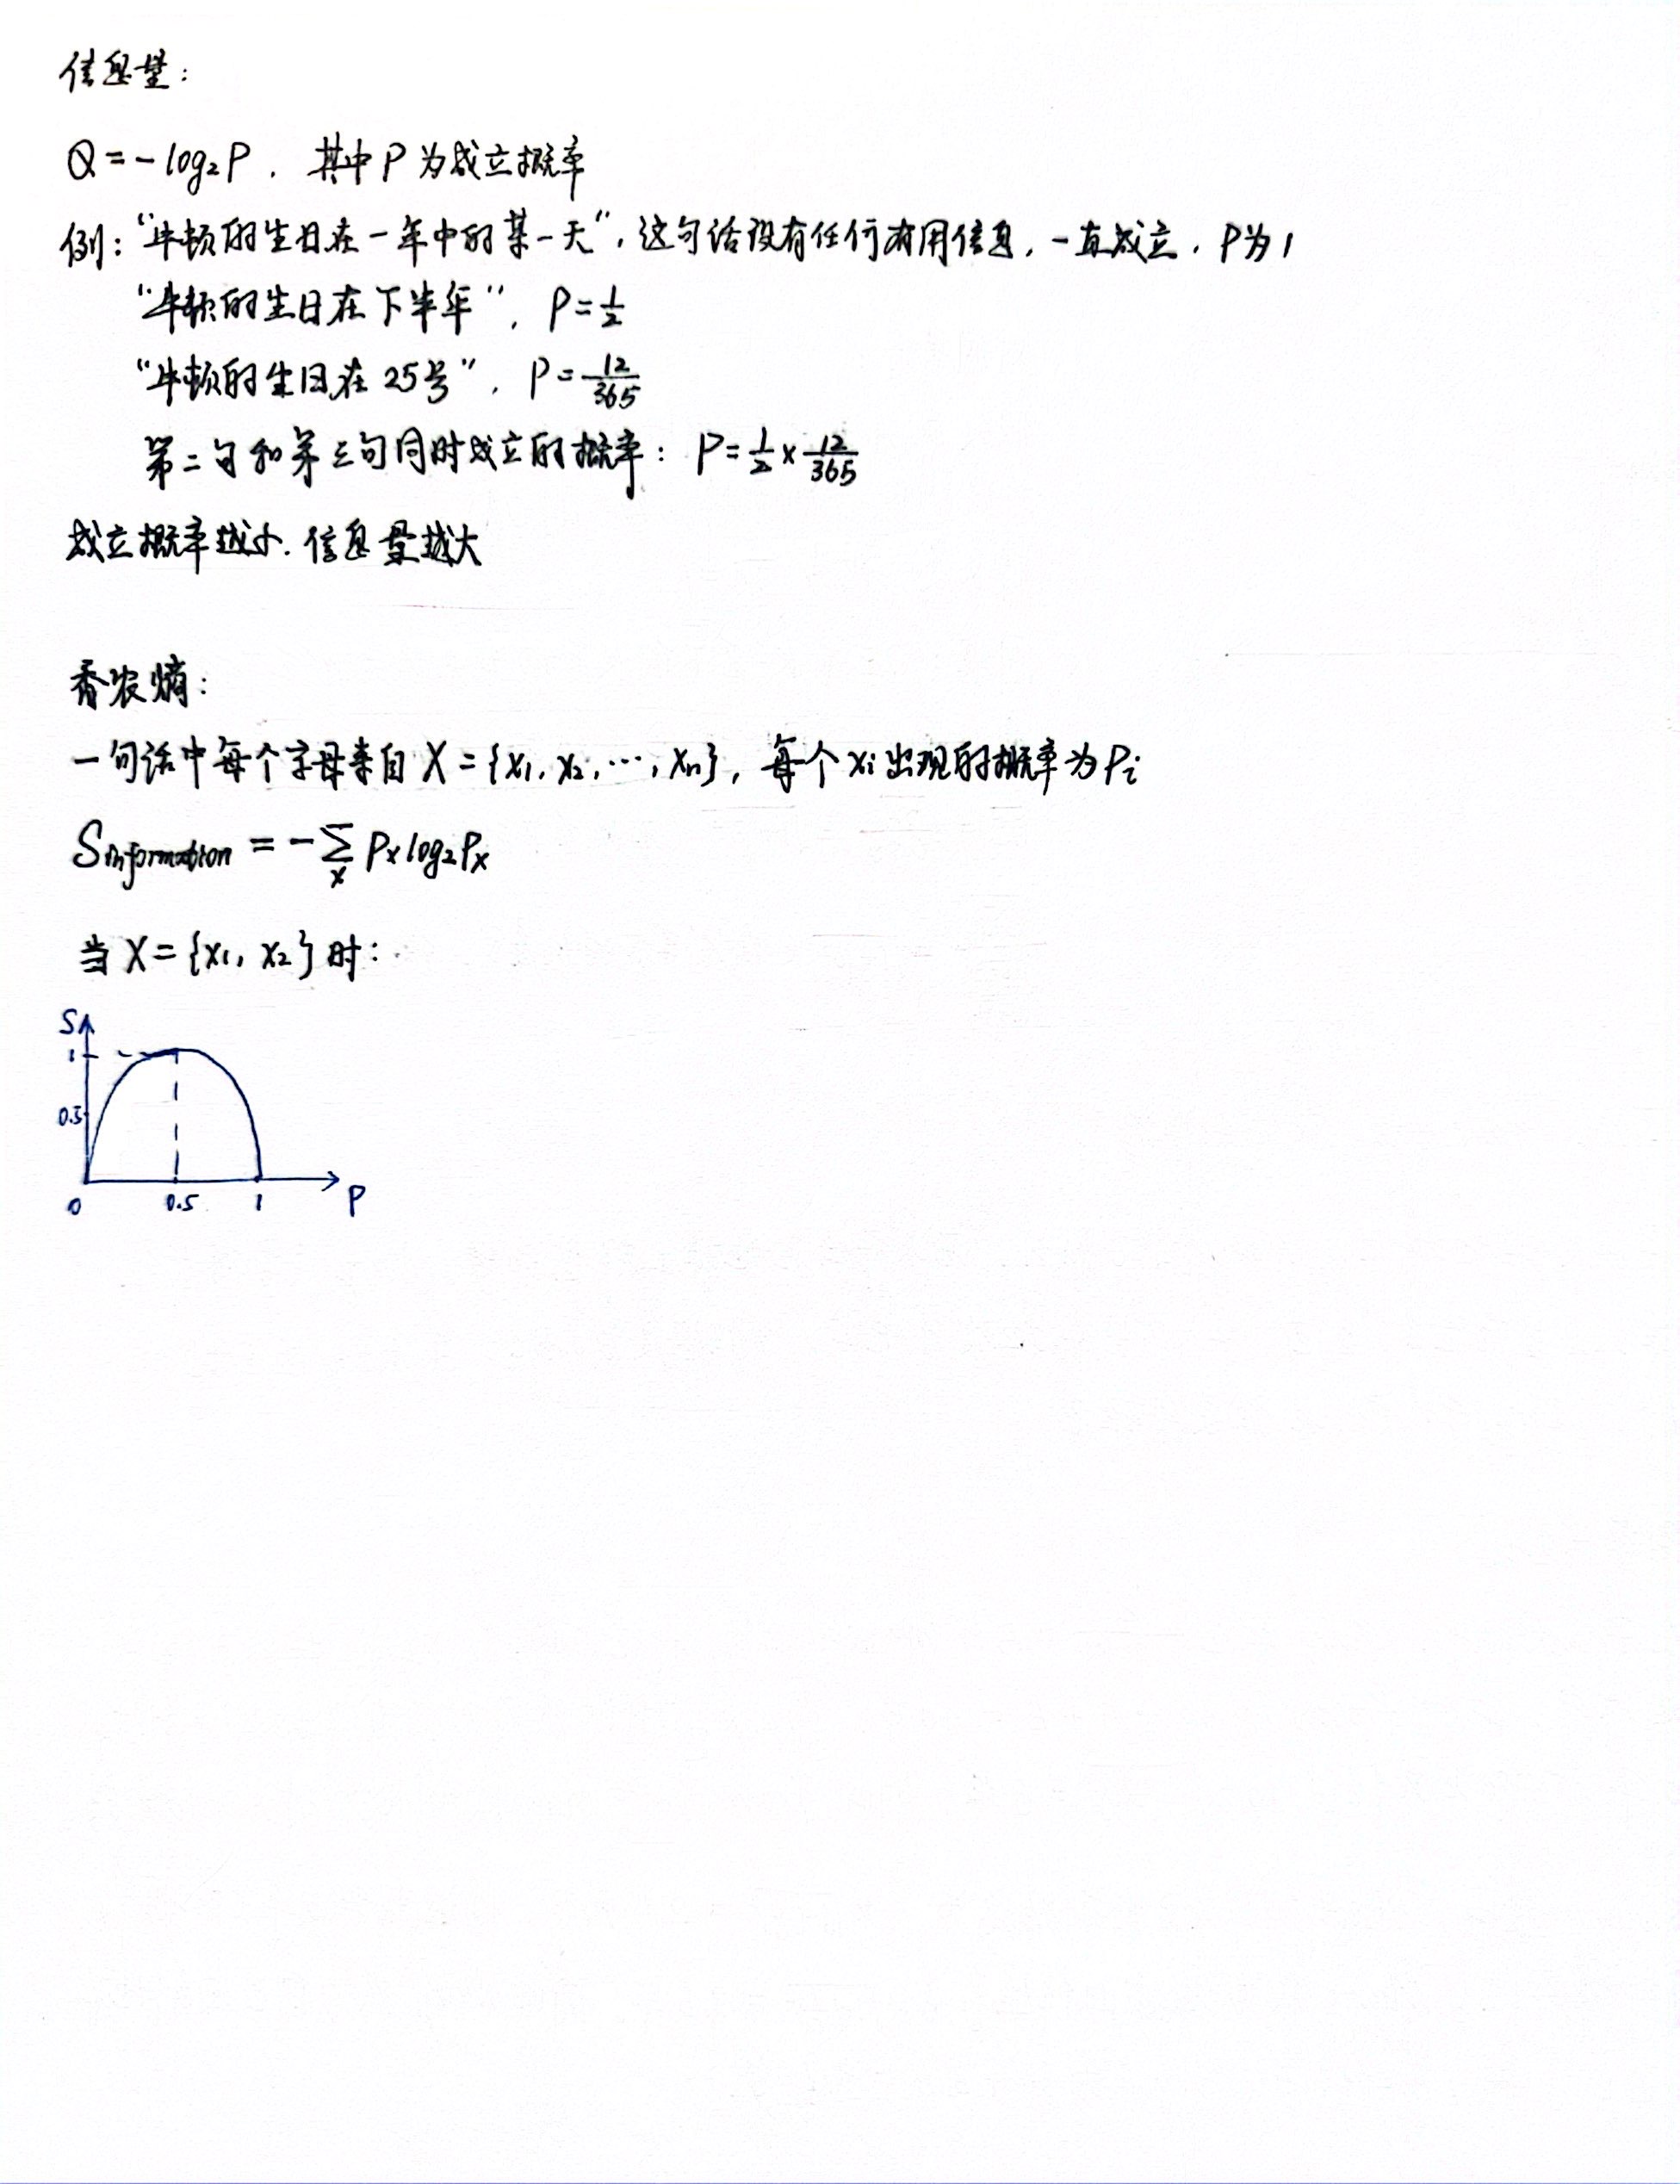 信息量：
Q = -log₂P，其中P为成立概率
例：“牛顿的生日在一年中的某一天”，这句话没有任何有用信息，一直成立，P为1
“牛顿的生日在下半年”，P = 1/2
“牛顿的生日在25号”，P = 12/365
第二句和第三句同时成立的概率：P = 1/2 × 12/365
成立概率越小，信息量越大
香农熵：
一句话中每个字母来自 X = {x₁, x₂, ⋯, xₙ}，每个xᵢ出现的概率为Pᵢ
S_information = -∑_x Pₓ log₂Pₓ
当 X = {x₁, x₂} 时：
S
1
0.5
0 0.5 1 P